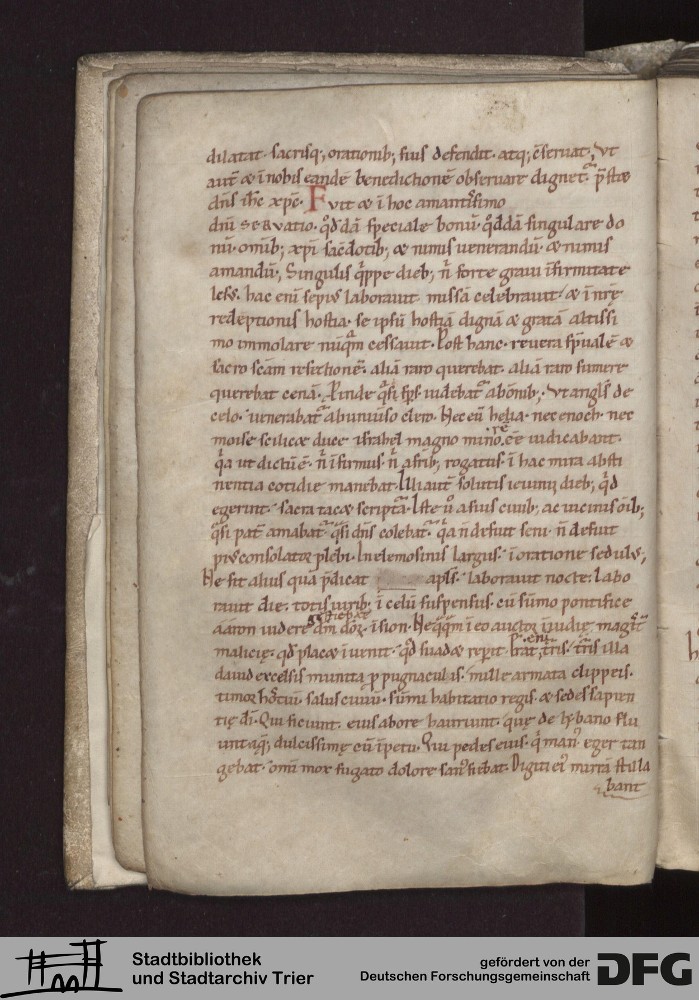 dilatat. sacrisq; orationib; suis defendit. atq; c̄seruat, Vt
aut̄ & ī nobis eandē benedictionē observare dignet᷑. p̄stæ
dn̄s ihc̄ xp̄c. Fvit & ī hoc amantissimo
dn̄i seruatio. qd̄dā speciale bonū. qd̄dā singulare do
nū. omīb; xp̄i sac̄dotib; & nimis venerandū. & nimis
amandū, Singulis q̄ppe dieb; n̄ forte graui īfirmitate
lesus. hac enī sepius laborauit missā celebrauit. & ī nr̄ę
redēptionis hostia. se ipsū hostiā dignā & gratā altissi
mo immolare nūq̄m cessauit. Post hanc. revera sp̄ualē &
sacro sc̄am refectionē. aliā raro querebat. aliā raro sumere
querebat cenā. Proinde q̄si sp̄s uidebat᷑ ab om̄ib;. Vt angl̄s de
celo. venerabat᷑ ab uniuerso clero. Nec eni helia. nec enoch. nec
moise scilicæ duce israhel magno minorē eē iudicabant.
q̄a ut dictū ē. n̄ īfirmus. n̄ a frīb; rogatus. ī hac mira absti
nentia cotidie manebat. Illi aut̄ solutis ieiunii dieb; qd̄
egerint. sacra tacæ scriptura. Iste ū a suis ciuib; ac uicinis oīb;
q̄si pat̄ amabat᷑. q̄si dn̄s colebat᷑. q̄a n̄ defuit seni. n̄ defuit
pius consolator plebi. In elemosinis largus. ī oratione sedulus,
Ne sit alius quā p̄dicat apl̄s. laborauit nocte. labo
rauit die. totis uirib; ī celū suspensus. cū sūmo pontifice
aaron uidere dm̄ deor̄. ī sion. Neq̄q̄m ī eo auctor īuidię
malicię. qd̄ placeæ īuenit. qd̄ suadeæ reperit.
dauid excelsis munita p̄pugnaculis. mille armata clippeis.
timor hostiū. salus ciuiū. sūmi habitatio regis. & sedes sapien
tię dī. Qui sitiunt. eius ab ore hauriunt. que de lybano flu
unt aq̄; dulcissimę cū īpetu. Qui pedes eius. q̄ man᷒ eger tan
gebat. om̄i mox fugato dolore san᷒ fiebat. Digiti ei᷒ mirrā stilla
bant
Stadtbibliothek
und Stadtarchiv Trier
gefördert von der
Deutschen Forschungsgemeinschaft
DFG